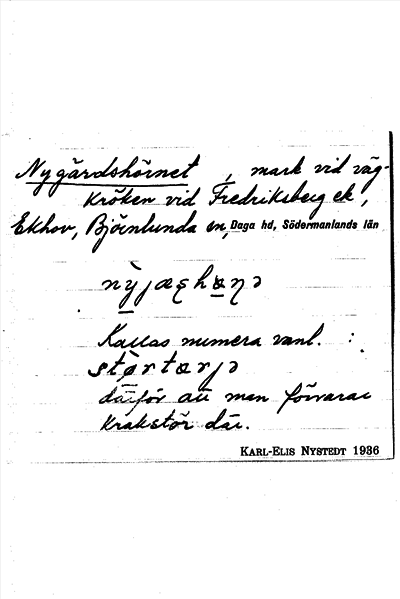 Nygårdshörnet, mark vid väg-
kröken vid Fredriksberg ek,
Ekhov, Björnlunda sn, Daga hd, Södermanlands län
Kallas numera vanl. :
därför att man förvarar
krakstör där.
KARL-ELIS NYSTEDT 1936